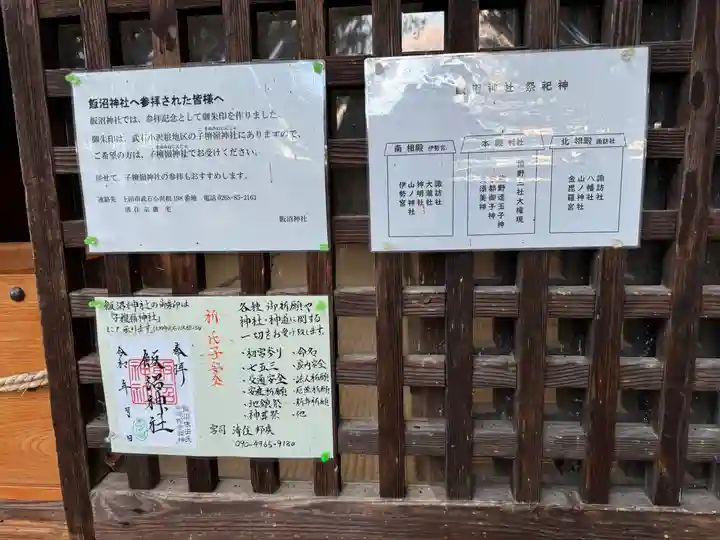 飯沼神社へ参拝された皆様へ
飯沼神社では、参拝記念として御朱印を作りました
御朱印は、武石小沢根地区の子檀嶺神社にありますので、
ご希望の方は、子檀嶺神社でお受けください。
併せて、子檀嶺神社の参拝もおすすめします。
連絡先 上田市武石小沢根198番地 電話0268-85-2162
清住宗廣 宅
飯沼神社
神社 祭祀神
南相殿 伊勢宮
諏訪社
大瀧社
神明社
山ノ神社
伊勢宮
本殿 村社
熊野三社大権現
北相殿 諏訪社
諏訪社
八幡社
山ノ神社
金毘羅宮
飯沼神社の御朱印は
「子檀嶺神社」
にて承ります。
奉拝
飯沼神社
令和 年 月 日
祈 氏子安全
各種御祈願や
神社・神道に関する
一切をお受け致します
・初宮参り ・命名
・七五三 ・家内安全
・交通安全 ・法人祈願
・安産祈願 ・厄除祈願
・地鎮祭 ・新年祈願
・神葬祭 ・他
宮司 清住 邦廣
090-4965-9180